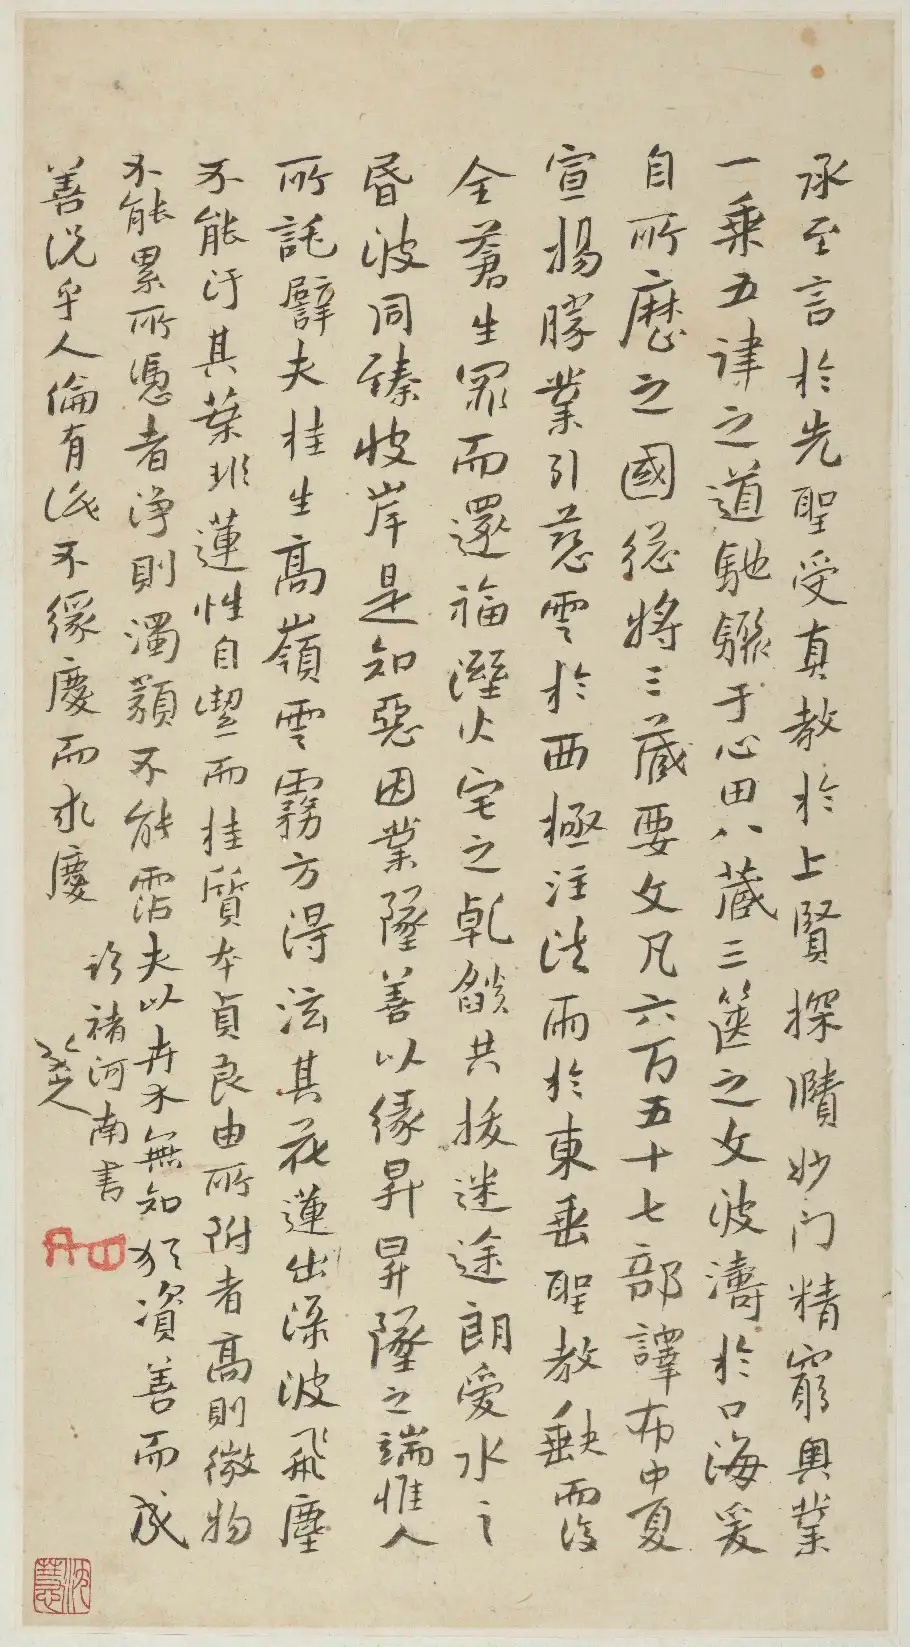 承至言於先聖受真教於上賢探賾妙門精窮奧業
一乘五律之道馳驟于心田八藏三篋之文波濤於口海爰
自所歷之國総將三藏要文凡六百五十七部譯布中夏
宣揚勝業引慈雲於西極注法雨於東垂聖教缺而復
全蒼生罪而還福溼火宅之乾燄共拔迷途朗愛水之
昏波同臻彼岸是知惡因業墜善以緣昇昇墜之端惟人
所託譬夫桂生高嶺雲霧方得泫其花蓮出淥波飛塵
不能汙其葉非蓮性自潔而桂質本貞良由所附者高則微物
不能累所憑者淨則濁類不能霑夫以卉木無知猶資善而成
善況乎人倫有識不緣慶而求慶
臨褚河南書
八大山人
沈慧